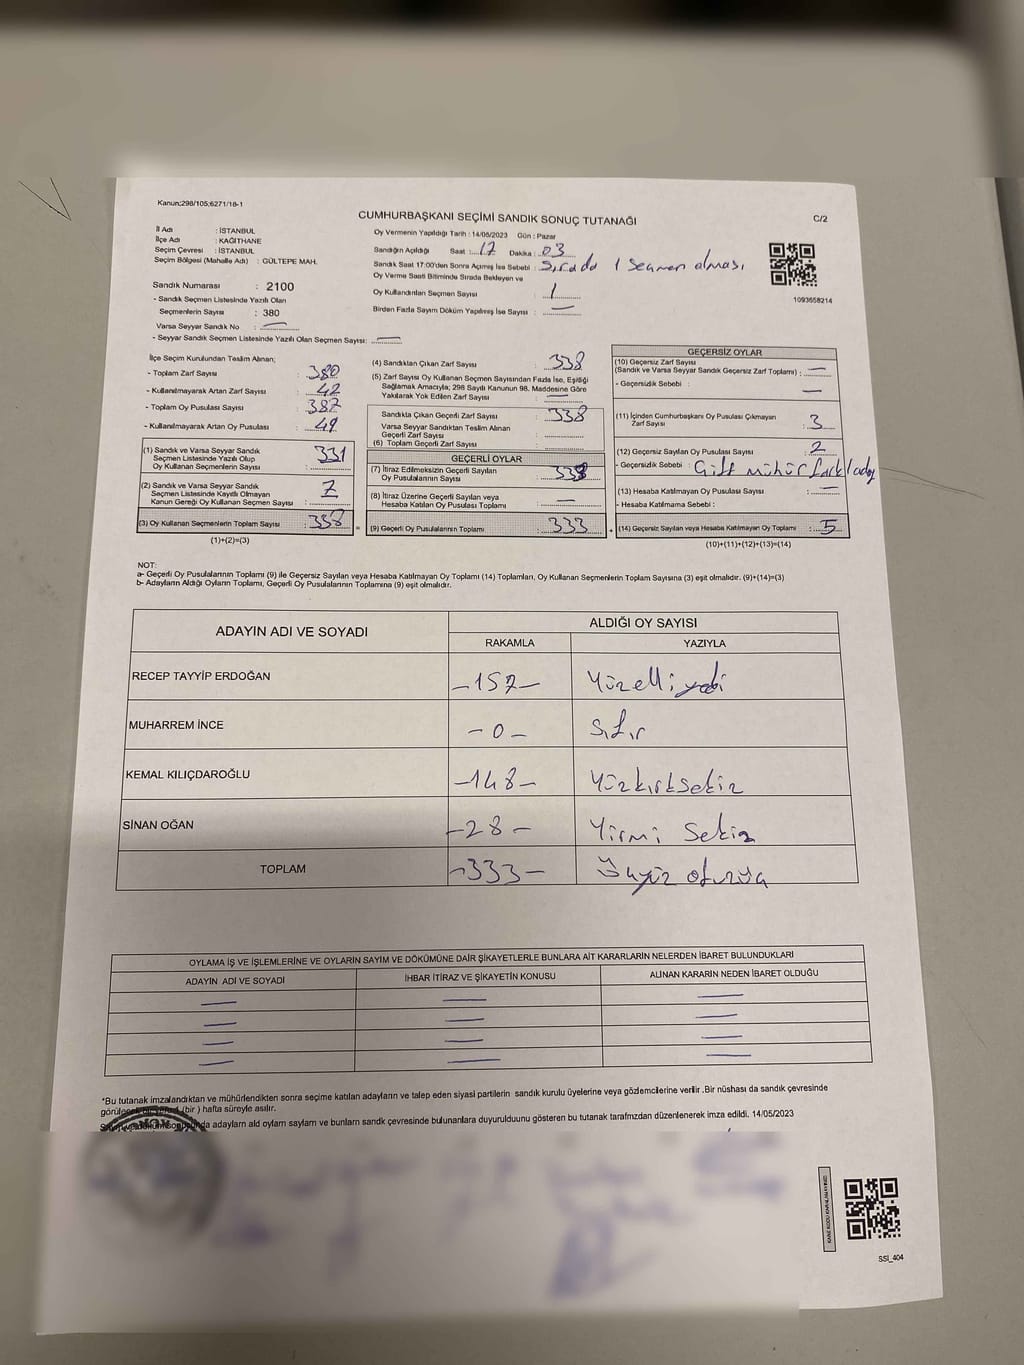 Kanun:298/105;6271/18-1
CUMHURBAŞKANI SEÇİMİ SANDIK SONUÇ TUTANAĞI
C/2
İl Adı : İSTANBUL
İlçe Adı : KAĞITHANE
Seçim Çevresi : İSTANBUL
Seçim Bölgesi (Mahalle Adı) : GÜLTEPE MAH.
Sandık Numarası : 2100
- Sandık Seçmen Listesinde Yazılı Olan
Seçmenlerin Sayısı : 380
Varsa Seyyar Sandık No :
- Seyyar Sandık Seçmen Listesinde Yazılı Olan Seçmen Sayısı:
Oy Vermenin Yapıldığı Tarih : 14/05/2023 Gün : Pazar
Sandığın Açıldığı Saat :17 Dakika : 03
Sandık Saat 17:00'den Sonra Açılmış İse Sebebi : Sırada 1 seçmen olması
Oy Verme Saati Bitiminde Sırada Bekleyen ve
Oy Kullandırılan Seçmen Sayısı : 1
Birden Fazla Sayım Döküm Yapılmış İse Sayısı : —
1093658214
İlçe Seçim Kurulundan Teslim Alınan;
- Toplam Zarf Sayısı : 380
- Kullanılmayarak Artan Zarf Sayısı : 42
- Toplam Oy Pusulası Sayısı : 387
- Kullanılmayarak Artan Oy Pusulası : 49
(1) Sandık ve Varsa Seyyar Sandık
Seçmen Listesinde Yazılı Olup
Oy Kullanan Seçmenlerin Sayısı : 331
(2) Sandık ve Varsa Seyyar Sandık
Seçmen Listesinde Kayıtlı Olmayan
Kanun Gereği Oy Kullanan Seçmen Sayısı : 7
(3) Oy Kullanan Seçmenlerin Toplam Sayısı : 338
(1)+(2)=(3)
(4) Sandıktan Çıkan Zarf Sayısı : 338
(5) Zarf Sayısı Oy Kullanan Seçmen Sayısından Fazla İse, Eşitliği
Sağlamak Amacıyla; 298 Sayılı Kanunun 98. Maddesine Göre
Yakılarak Yok Edilen Zarf Sayısı : —
Sandıkta Çıkan Geçerli Zarf Sayısı : 338
Varsa Seyyar Sandıktan Teslim Alınan
Geçerli Zarf Sayısı :
(6) Toplam Geçerli Zarf Sayısı :
GEÇERLİ OYLAR
(7) İtiraz Edilmeksizin Geçerli Sayılan
Oy Pusulalarının Sayısı :
(8) İtiraz Üzerine Geçerli Sayılan veya
Hesaba Katılan Oy Pusulası Toplamı : —
(9) Geçerli Oy Pusulalarının Toplamı : 333
GEÇERSİZ OYLAR
(10) Geçersiz Zarf Sayısı
(Sandık ve Varsa Seyyar Sandık Geçersiz Zarf Toplamı) : —
- Geçersizlik Sebebi : —
(11) İçinden Cumhurbaşkanı Oy Pusulası Çıkmayan
Zarf Sayısı : 3
(12) Geçersiz Sayılan Oy Pusulası Sayısı : 2
- Geçersizlik Sebebi : Çift mühür farklı aday
(13) Hesaba Katılmayan Oy Pusulası Sayısı : —
- Hesaba Katılmama Sebebi :
(14) Geçersiz Sayılan veya Hesaba Katılmayan Oy Toplamı : 5
(10)+(11)+(12)+(13)=(14)
NOT:
a- Geçerli Oy Pusulalarının Toplamı (9) ile Geçersiz Sayılan veya Hesaba Katılmayan Oy Toplamı (14) Toplamları, Oy Kullanan Seçmenlerin Toplam Sayısına (3) eşit olmalıdır. (9)+(14)=(3)
b- Adayların Aldığı Oyların Toplamı, Geçerli Oy Pusulalarının Toplamına (9) eşit olmalıdır.
ADAYIN ADI VE SOYADI
ALDIĞI OY SAYISI
RAKAMLA YAZIYLA
RECEP TAYYİP ERDOĞAN -157- Yüzelli yedi
MUHARREM İNCE -0- Sıfır
KEMAL KILIÇDAROĞLU -148- Yüzkırksekiz
SİNAN OĞAN -28- Yirmi Sekiz
TOPLAM -333- Üçyüz otuzüç
OYLAMA İŞ VE İŞLEMLERİNE VE OYLARIN SAYIM VE DÖKÜMÜNE DAİR ŞİKAYETLERLE BUNLARA AİT KARARLARIN NELERDEN İBARET BULUNDUKLARI
ADAYIN ADI VE SOYADI İHBAR İTİRAZ VE ŞİKAYETİN KONUSU ALINAN KARARIN NEDEN İBARET OLDUĞU
*Bu tutanak imzalandıktan ve mühürlendikten sonra seçime katılan adayların ve talep eden siyasi partilerin sandık kurulu üyelerine veya gözlemcilerine verilir .Bir nüshası da sandık çevresinde
(bir ) hafta süreyle asılır.
adayların aldı oyların sayların ve bunların sandk çevresinde bulunanlara duyurulduunu gösteren bu tutanak tarafmzdan düzenlenerek imza edildi. 14/05/2023
SSİ_404